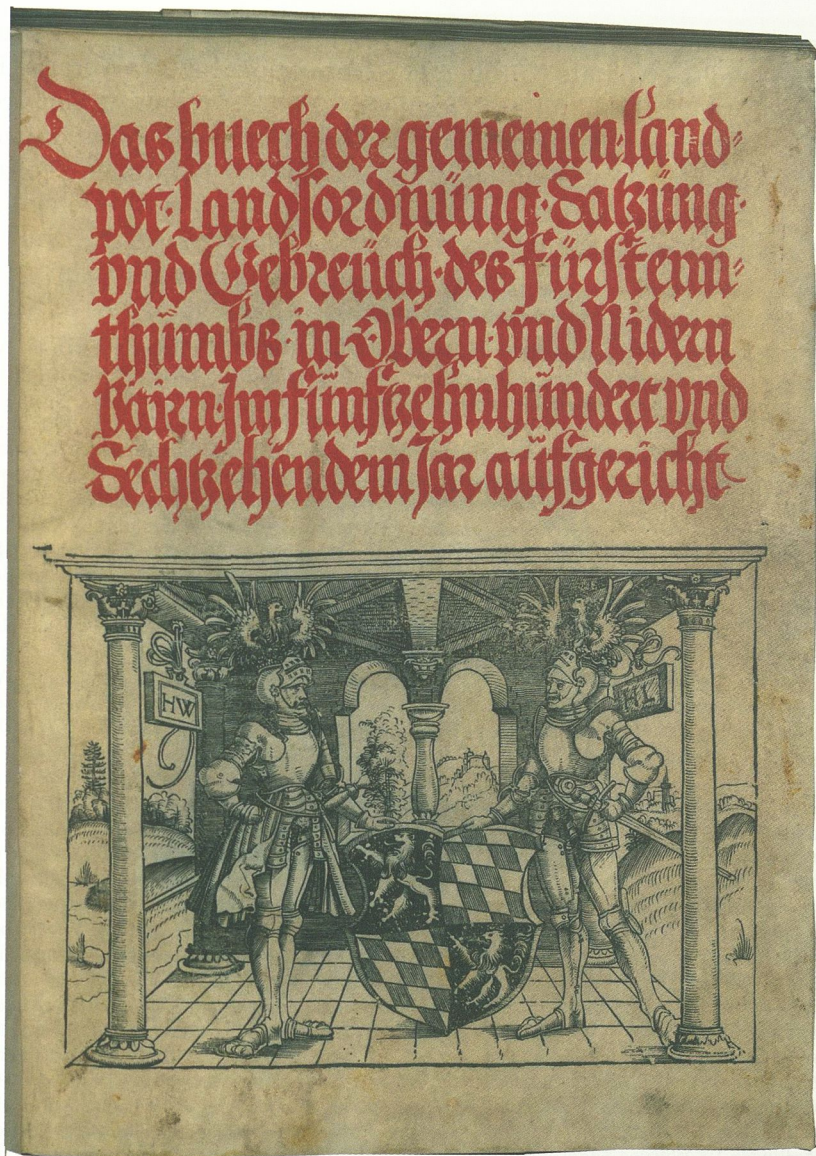 Das buech der gemeinen land-
pot · Landsordnüng · Satzüng ·
vnd Gebreüch · des Fürstenn-
thümbs · in Obern · vnd Nidern
Bairn · Im fünfftzehnhündert vnd
Sechtzehendem Jar aüfgericht
HW